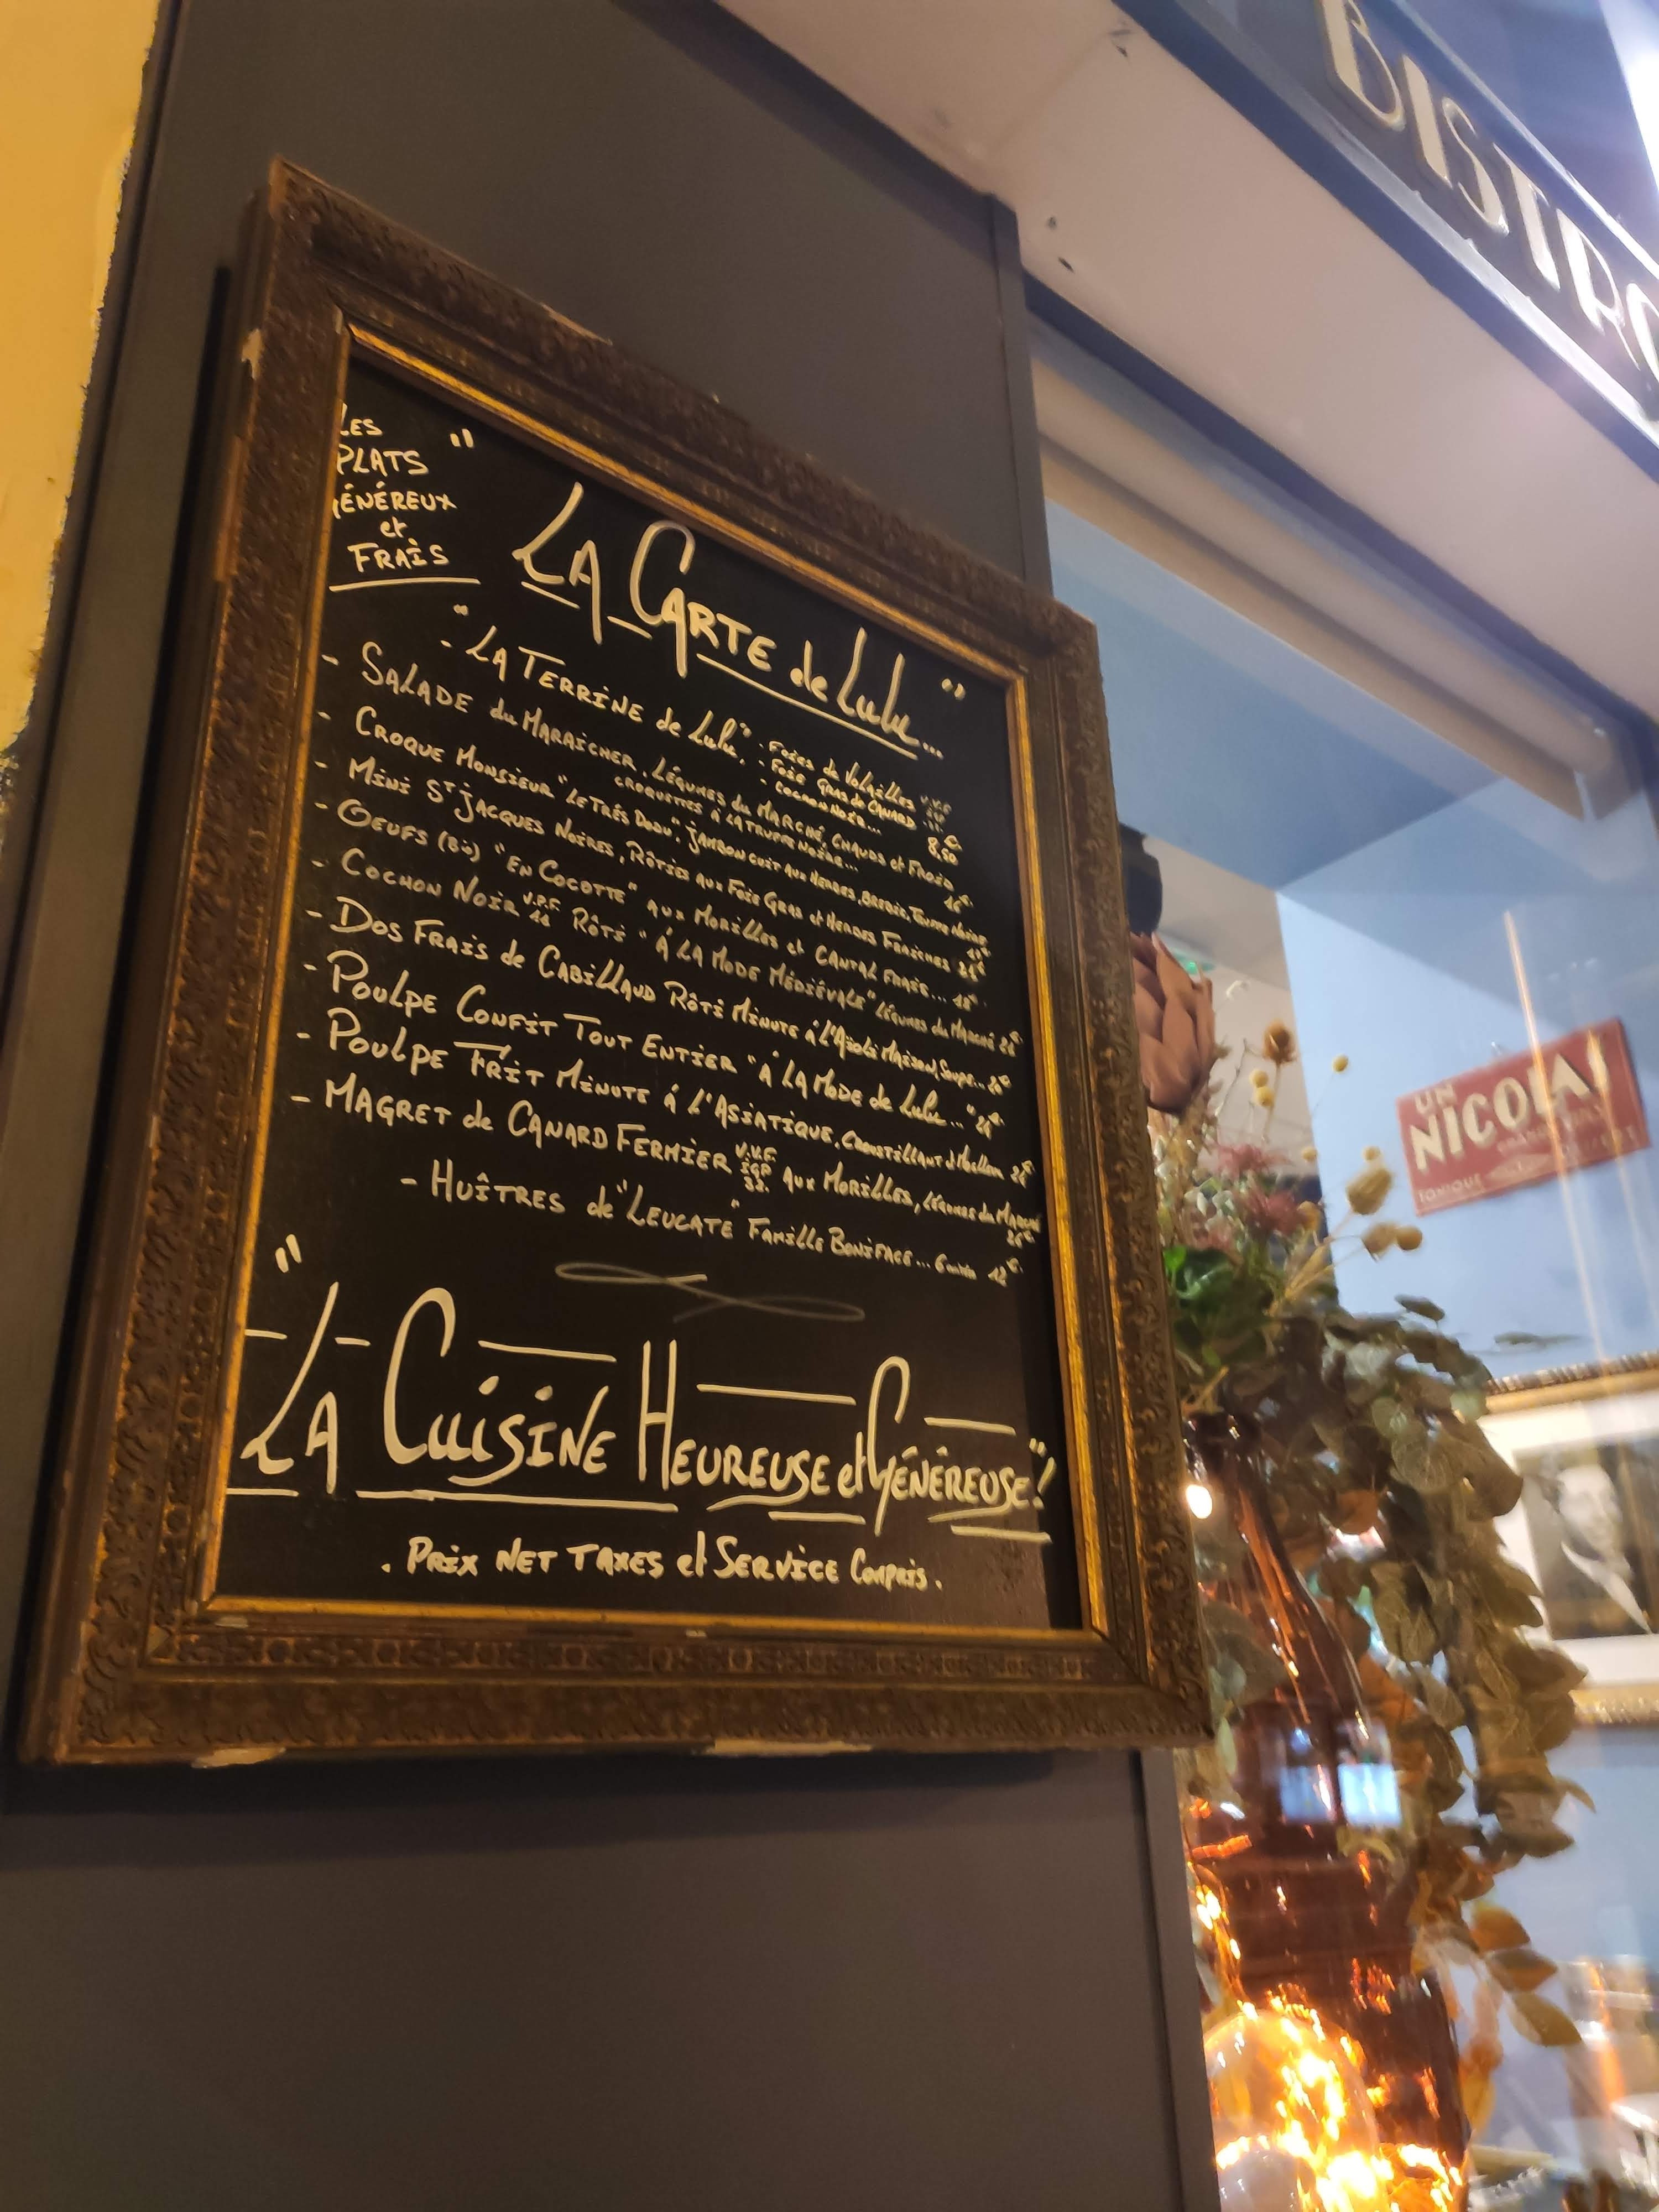 BISTRO
LES
PLATS
GÉNÉREUX
et
FRAIS
"LA CARTE de Lulu..."
- "LA TERRINE de Lulu". . Foies de Volailles V.V.F.
. Foie Gras de CANARD
. COCHON NOIR... 8,50€
- SALADE du MARAÎCHER, LÉGUMES du MARCHÉ, CHAUDS et FROID
CROQUETTES À LA TRUFFE NOIRE... 16€
- CROQUE MONSIEUR "LE TRÉS DODU", JAMBON CUIT AUX HERBES, BREBIS, TRUFFE NOIRE
- MINI ST JACQUES NOIRES, RÔTIES AUX FOIE GRAS et HERBES FRAICHES 21€
- OEUFS (Bio) "EN COCOTTE" AUX MORILLES et CANTAL FRAIS... 18€
- COCHON NOIR V.P.F. 11 RÔTI "À LA MODE MÉDIÉVALE" LÉGUMES du MARCHÉ
- DOS FRAIS de CABILLAUD RÔTI MINUTE à L'AÏOLI MAISON, SOUPE...
- POULPE CONFIT TOUT ENTIER "À LA MODE de Lulu..."
- POULPE FRIT MINUTE À L'ASIATIQUE, CROUSTILLANT et MOELLEUX
- MAGRET de CANARD FERMIER V.V.F. IGP 32. AUX MORILLES, LÉGUMES du MARCHÉ
26€
- HUÎTRES de "LEUCATE" FAMILLE BONIFACE... 12€
"LA CUISINE HEUREUSE et GÉNÉREUSE"!
. PRIX NET TAXES et SERVICE COMPRIS.
UN
NICOLAS
TONIQUE